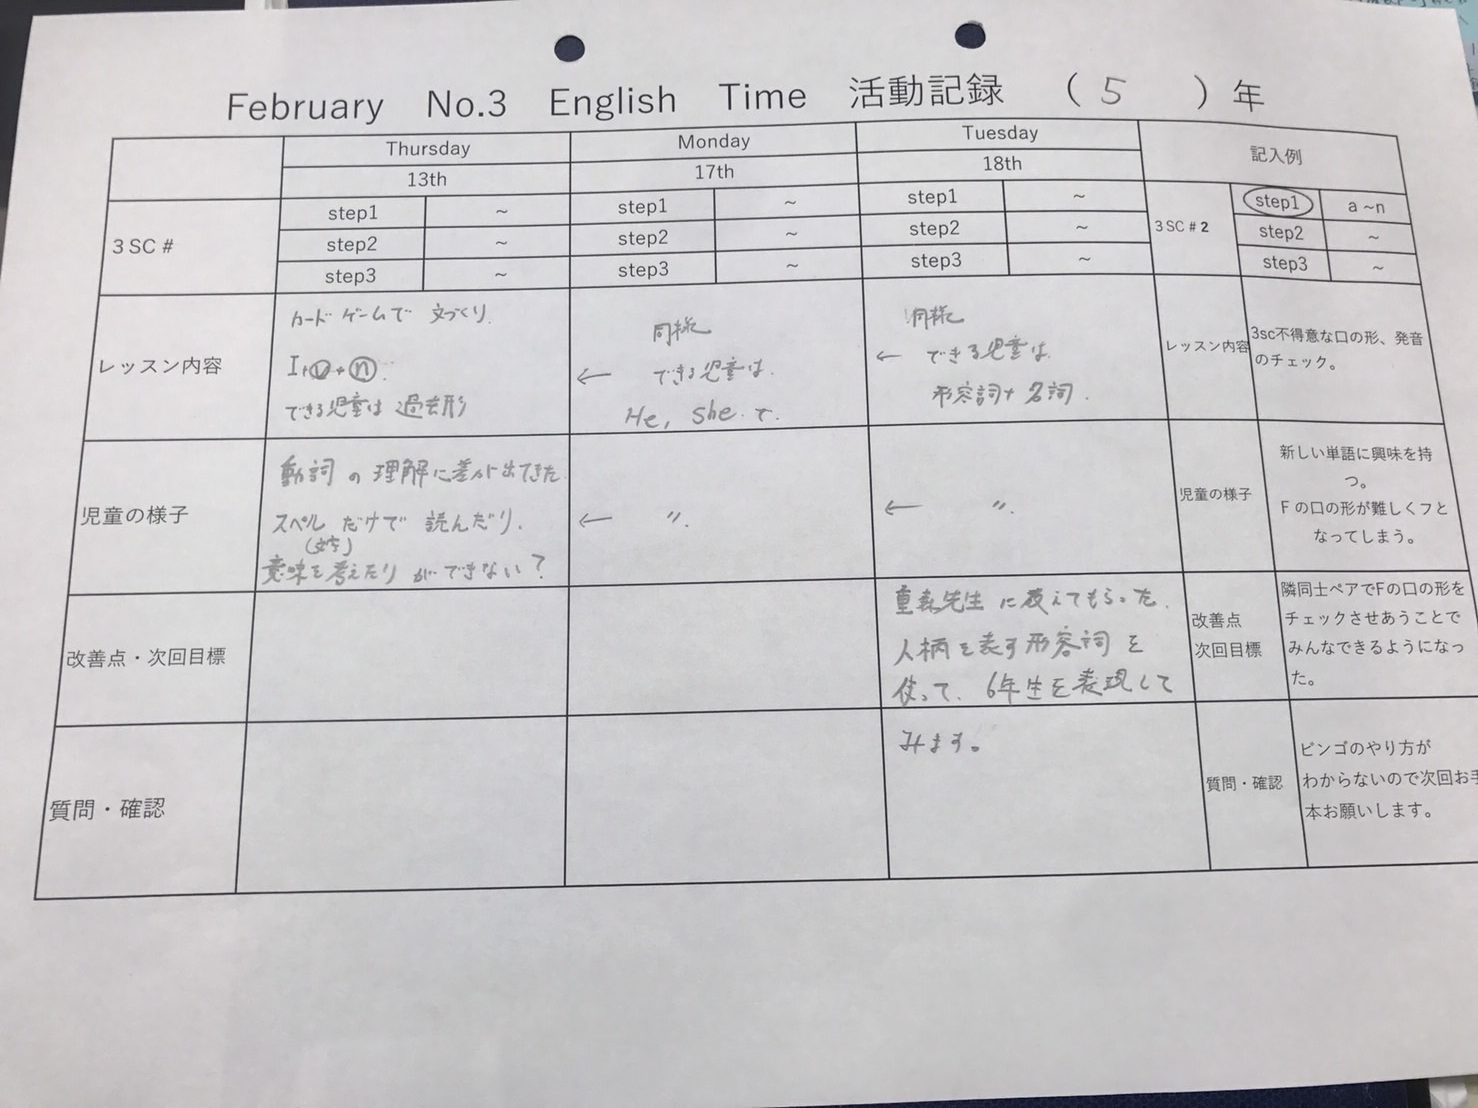 February No.3 English Time 活動記録 （ 5 ）年
Thursday Monday Tuesday 記入例
13th 17th 18th
3SC # step1 ~ step1 ~ step1 ~ 3SC #2 step1 a ~n
step2 ~ step2 ~ step2 ~ step2 ~
step3 ~ step3 ~ step3 ~ step3 ~
レッスン内容
カードゲームで 文づくり.
I+ⓥ+ⓝ.
できる児童は 過去形
同様
← できる児童は.
He, She. で.
同様
← できる児童は.
形容詞+名詞.
レッスン内容
3sc不得意な口の形、発音
のチェック。
児童の様子
動詞の理解に差が出てきた
スペルだけで 読んだり.
(文字)
意味を考えたり ができない?
← 〃.
← 〃.
児童の様子
新しい単語に興味を持
つ。
Fの口の形が難しくフと
なってしまう。
改善点・次回目標
重森先生に教えてもらった.
人柄を表す形容詞を
使って. 6年生を表現して
みます。
改善点
次回目標
隣同士ペアでFの口の形を
チェックさせあうことで
みんなできるようになっ
た。
質問・確認
質問・確認
ビンゴのやり方が
わからないので次回お手
本お願いします。